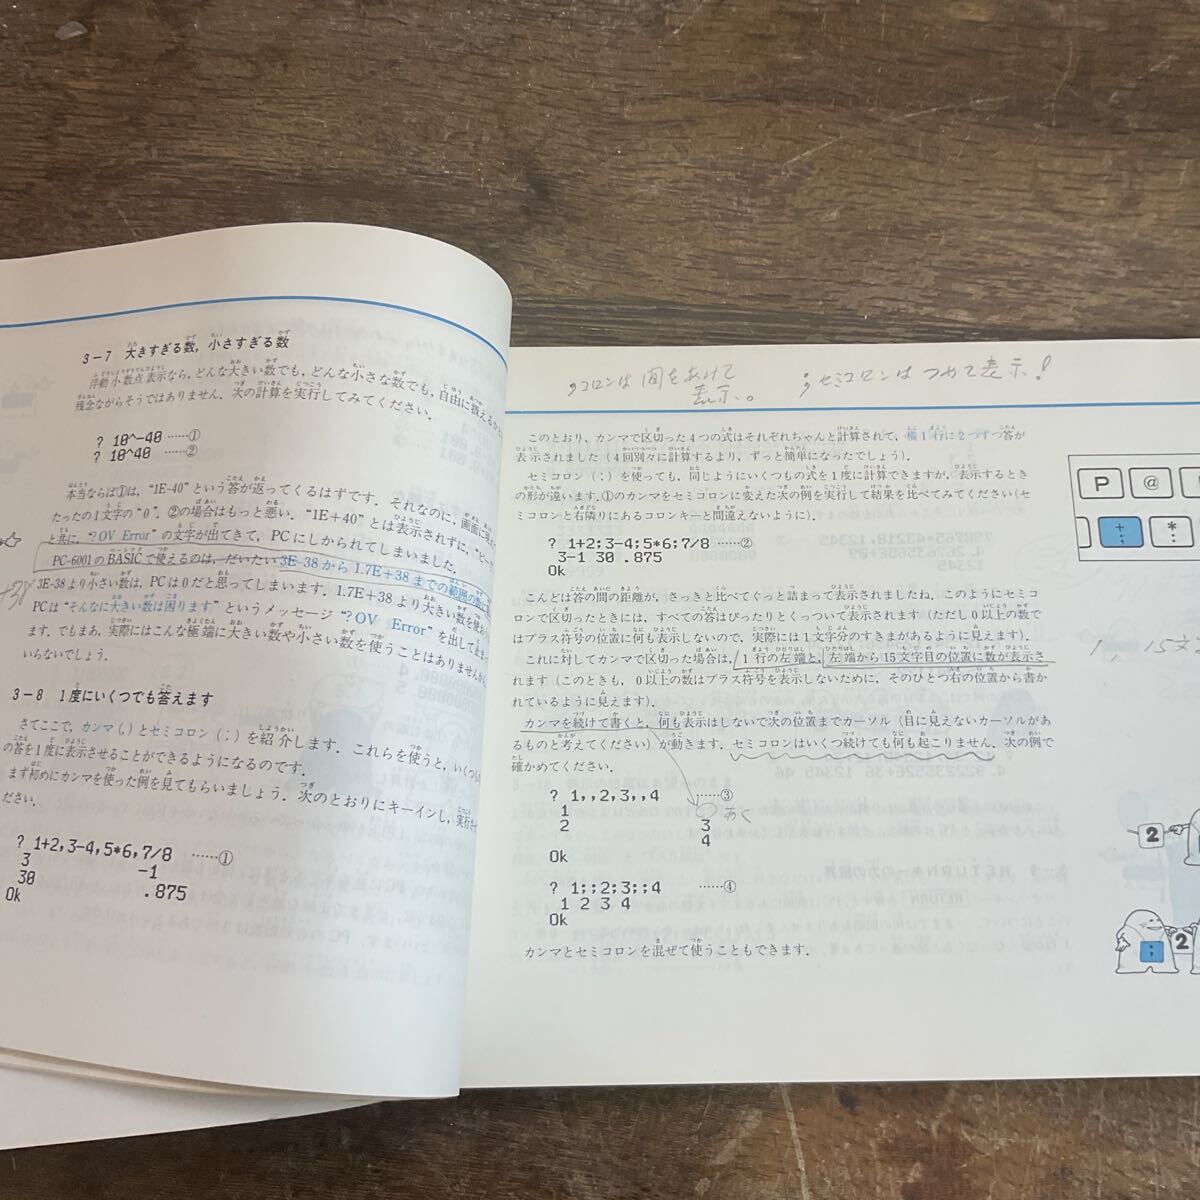 3－7 大きすぎる数，小さすぎる数
浮動小数点表示なら，どんな大きい数でも，どんな小さな数でも，自由に扱える
残念ながらそうではありません．次の計算を実行してみてください．
? 10^-40 ……①
? 10^40 ……②
本当ならば①は，“1E-40”という答が返ってくるはずです．それなのに，画面に
たったの1文字の“0”．②の場合はもっと悪い．“1E＋40”とは表示されずに，“ピー
と共に，“?OV Error”の文字が出てきて，PCにしかられてしまいました．
PC-6001のBASICで使えるのは，だいたい3E-38から1.7E＋38までの範囲の数
3E-38より小さい数は，PCは0だと思ってしまいます．1.7E＋38より大きい数を使
PCは“そんなに大きい数は困ります”というメッセージ“?OV Error”を出して
ます．でもまあ，実際にはこんな極端に大きい数や小さい数を使うことはありません
いらないでしょう．
3－8 1度にいくつでも答えます
さてここで，カンマ(，)とセミコロン(；)を紹介します．これらを使うと，いくつ
の答を1度に表示させることができるようになるのです．
まず初めにカンマを使った例を見てもらいましょう．次のとおりにキーインし，実行さ
ださい．
? 1+2,3-4,5*6,7/8 ……①
3 -1
30 .875
Ok
，コロンは 間をあけて
表示。
；セミコロンは つめて表示！
このとおり，カンマで区切った4つの式はそれぞれちゃんと計算されて，横1行に2つずつ答が
表示されました（4回別々に計算するより，ずっと簡単になったでしょう）．
セミコロン（；）を使っても，同じようにいくつもの式を1度に計算できますが，表示するとき
の形が違います．①のカンマをセミコロンに変えた次の例を実行して結果を比べてみてください（セ
ミコロンと右隣りにあるコロンキーと間違えないように）．
? 1+2;3-4;5*6;7/8 ……②
3-1 30 .875
Ok
こんどは答の間の距離が，さっきと比べてぐっと詰まって表示されましたね．このようにセミコ
ロンで区切ったときには，すべての答はぴったりとくっついて表示されます（ただし0以上の数で
はプラス符号の位置に何も表示しないので，実際には1文字分のすきまがあるように見えます）．
これに対してカンマで区切った場合は，1行の左端と，左端から15文字目の位置に数が表示さ
れます（このときも，0以上の数はプラス符号を表示しないために，そのひとつ右の位置から書か
れているように見えます）．
カンマを続けて書くと，何も表示はしないで次の位置までカーソル（目に見えないカーソルがあ
るものと考えてください）が動きます．セミコロンはいくつ続けても何も起こりません．次の例で
確かめてください．
? 1,,2,3,,4 ……③
1 あく
2 3
4
Ok
? 1;;2;3;;4 ……④
1 2 3 4
Ok
カンマとセミコロンを混ぜて使うこともできます．
P @
+ ;
* :
2
; 2